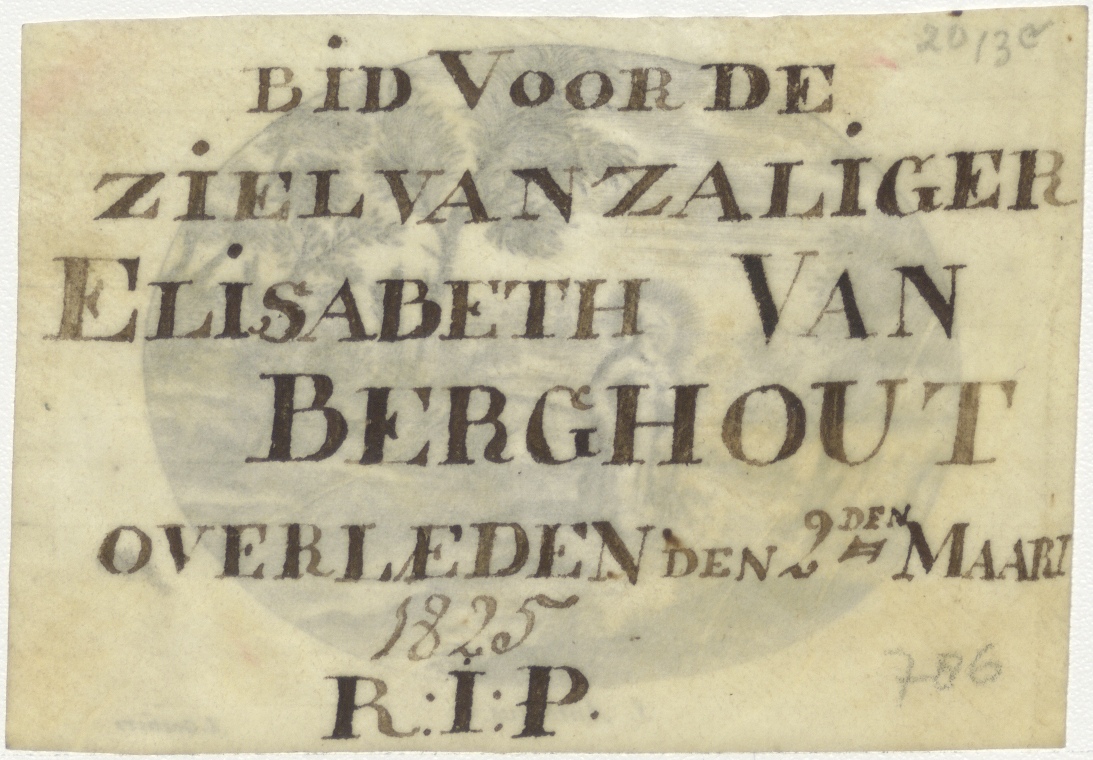 20/3c
BiD VOOR DE
ZiEL VAN ZALiGER
ELiSABETH VAN
BERGHOUT
OVERLEDEN DEN 2DEN MAART
1825
R:I:P.
786